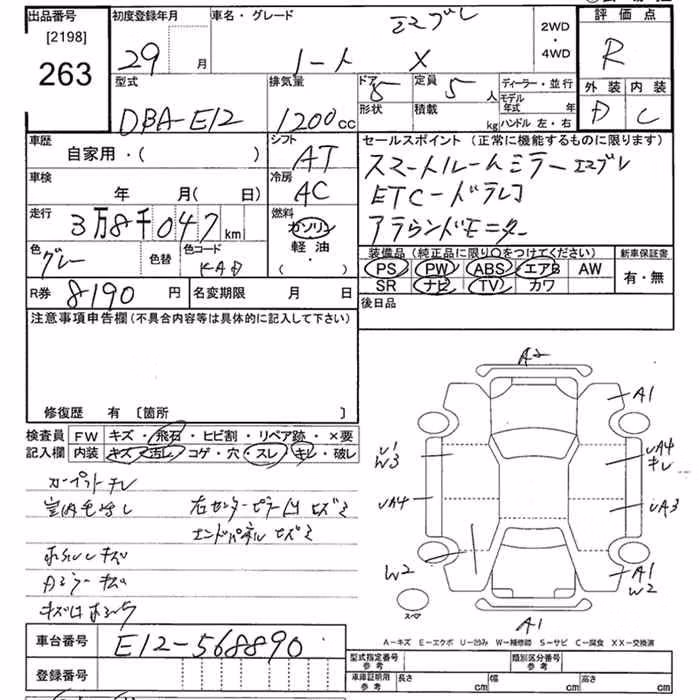 出品番号 初度登録年月 車名・グレード エマブレ 2WD ・ 4WD 評価点
[2198] 29 月 ノート X R
263
型式 排気量 ドア 5 定員 5 人 ディーラー・並行 外装 内装
DBA-E12 1200cc 形状 積載 kg モデル年式 年 ハンドル 左・右 D C
車歴 自家用・( ) シフト AT セールスポイント (正常に機能するものに限ります)
車検 年 月(日) 冷房 AC スマートルームミラー エマブレ
ETC ードラレコ
走行 3万8千047km 燃料 ガソリン 軽油 ・( ) アラウンドモニター
色 グレー 色替 色コード KAD 装備品(純正品に限り〇をつけてください) 新車保証書
PS PW ABS エアB AW 有・無
SR ナビ TV カワ
R券 8190 円 名変期限 月 日 後日品
注意事項申告欄(不具合内容等は具体的に記入して下さい)
修復歴 有 〔箇所 〕
検査員記入欄 FW キズ・飛石・ヒビ割・リペア跡・×要
内装 キズ・汚レ・コゲ・穴・スレ・キレ・破レ
カーペットキレ
右センターピラー凹ヒズミ
エンドパネルヒズミ
カラーキズ
A2
A1
U1
W3
UA4
キレ
UA4
UA3
W2
A1
W2
スペア
A1
A-キズ E-エクボ U-凹み W-補修跡 S-サビ C-腐食 XX-交換済
車台番号 E12-568890
登録番号
型式指定番号 参考 類別区分番号 参考
車庫証明用 参考 長さ cm 幅 cm 高さ cm